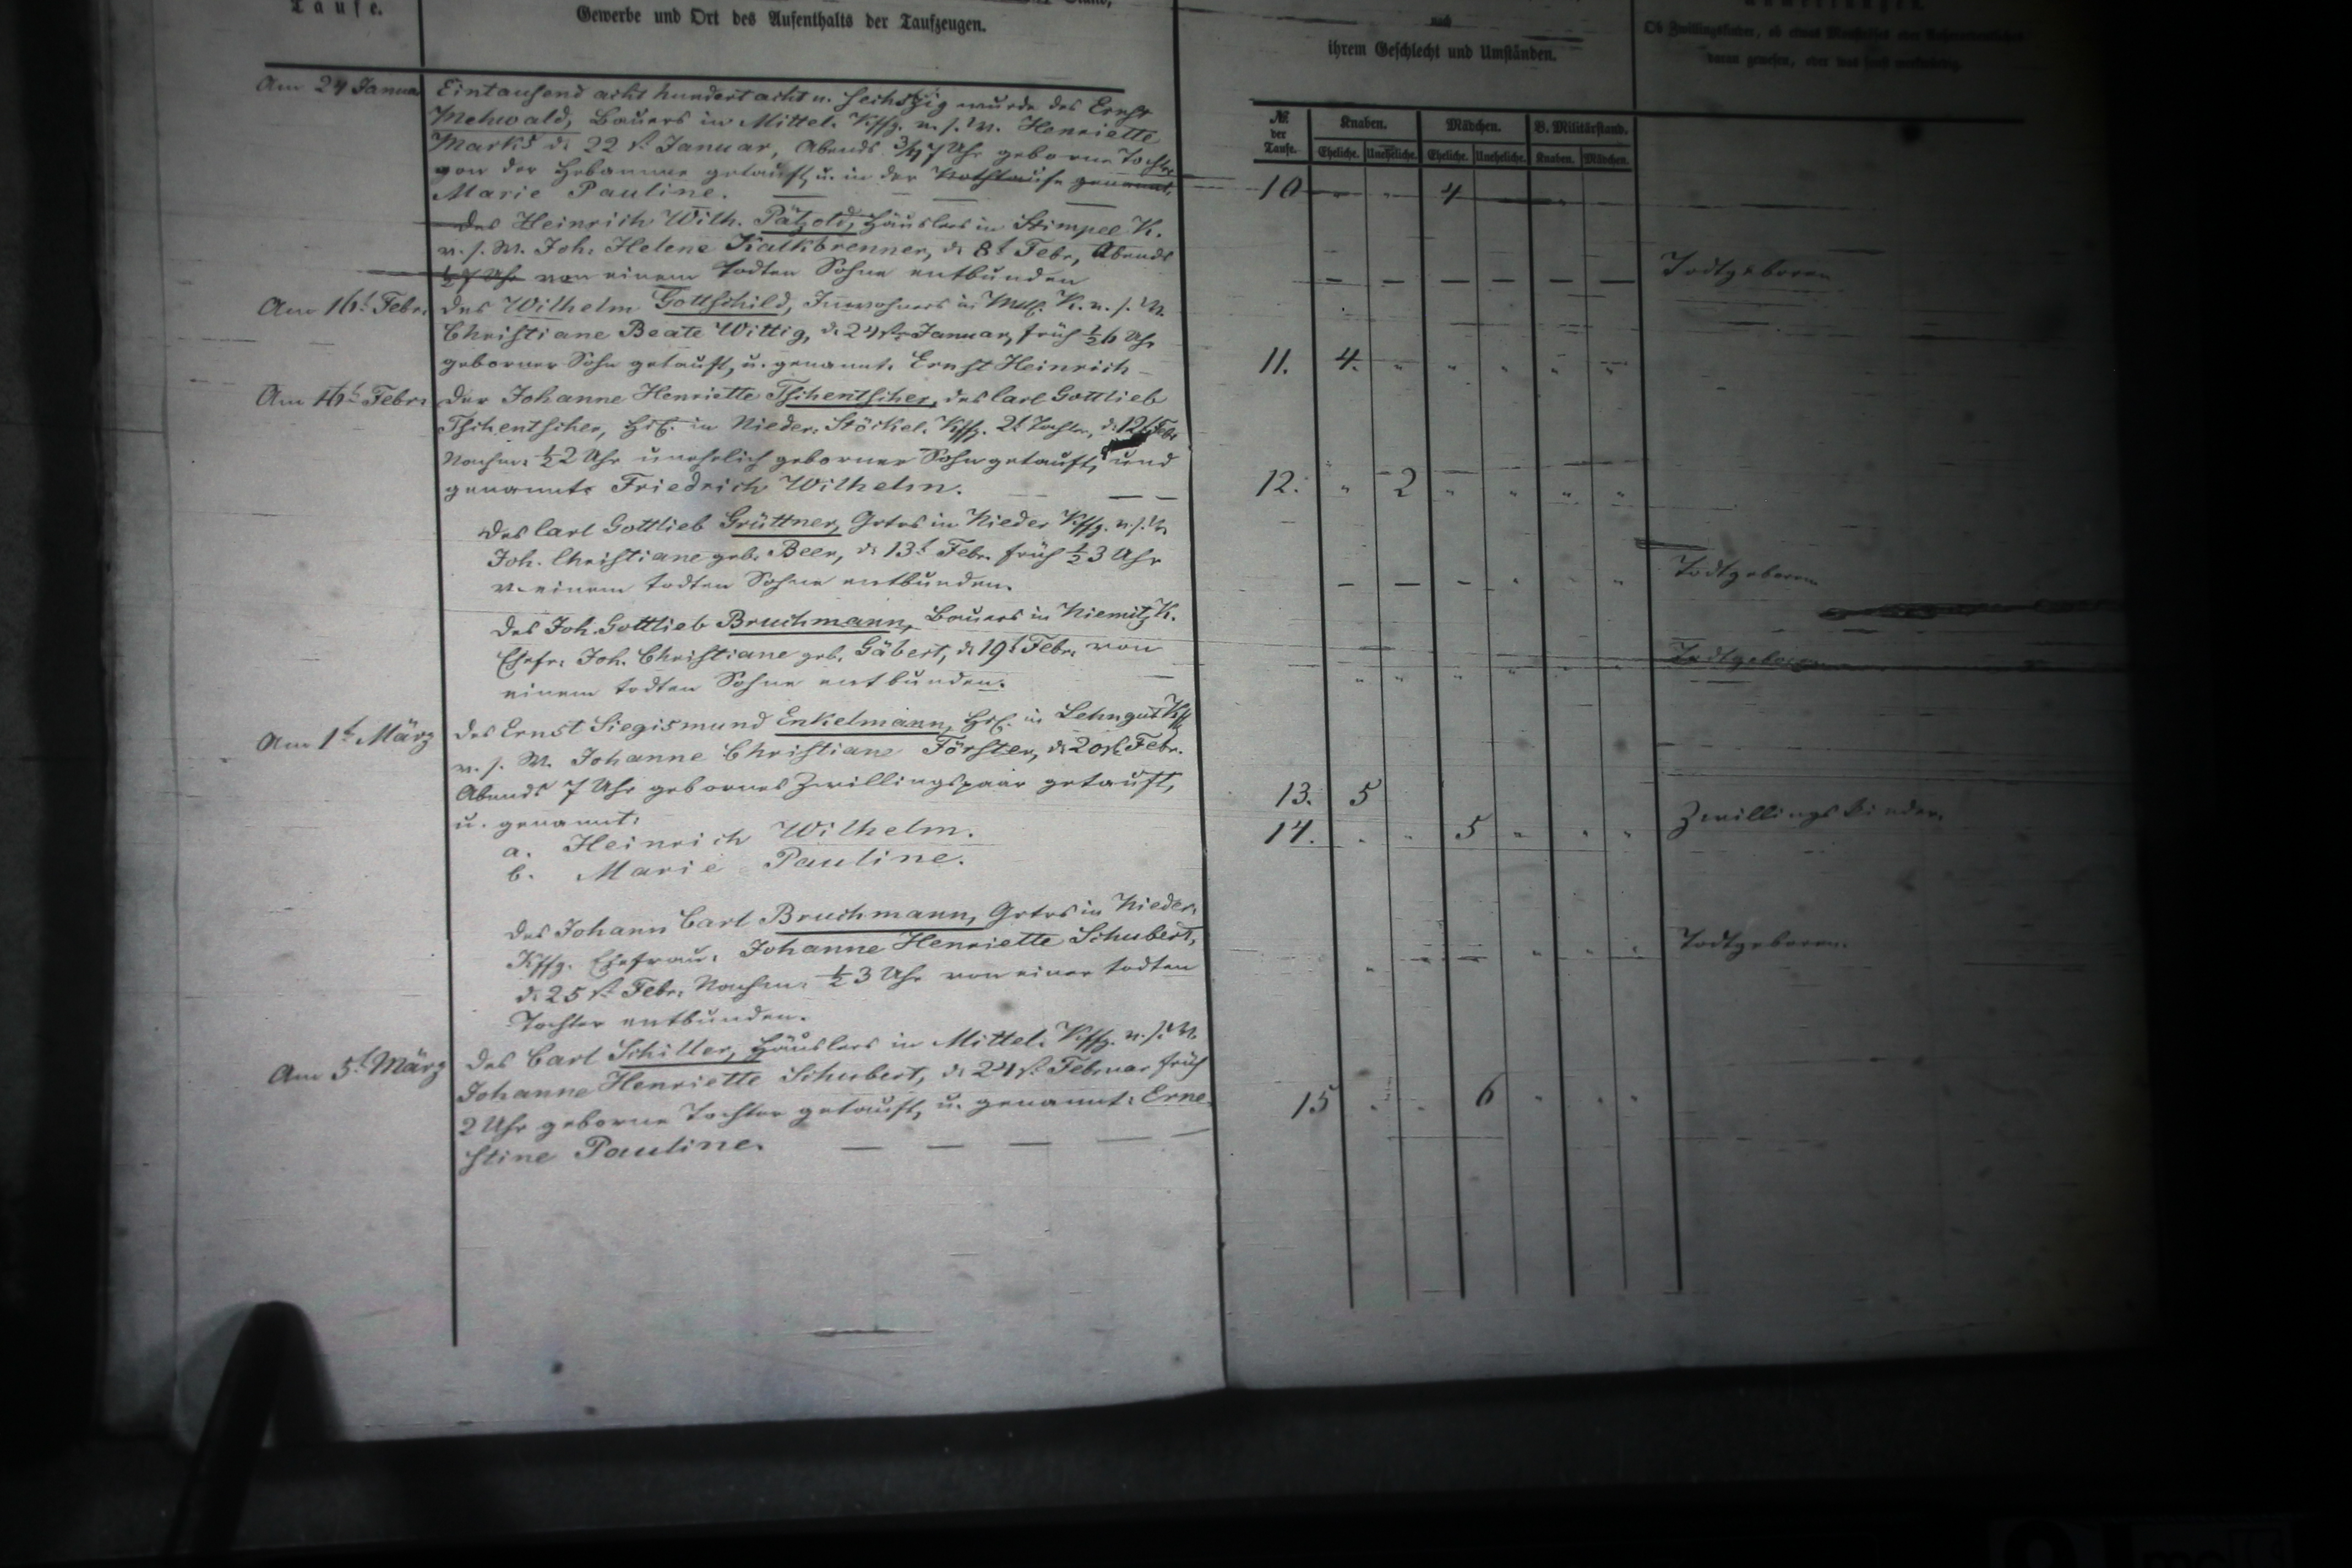 Taufe.
Gewerbe und Ort des Aufenthalts der Taufzeugen.
nach
ihrem Geschlecht und Umständen.
Ob Zwillingskinder, ob etwas
daran gewesen, oder was sonst merkwürdig.
№ der Taufe.
Knaben. Mädchen. B. Militärstand.
Eheliche. Uneheliche. Eheliche. Uneheliche. Knaben. Mädchen.
Am 24 Januar Eintausend acht hundert acht u. sechszig wurde des Ernst
Mehwald, Bauers in Mittel. Kffg. u. s. W. Henriette
Marks d. 22 st. Januar, Abends 3/4 7 Uhr geborne Tochter
von der Hebamme getauft, u. in der Nothtaufe genannt.
Marie Pauline. 10 4
Des Heinrich Wilh. Pätzold, Häuslers in Stimpel K.
u. s. W. Joh. Helene Kalkbrenner, d. 8t Febr, Abends
1/2 7 Uhr von einem todten Sohne entbunden Todtgeboren
Am 16t Febr. Des Wilhelm Gottschild, Inwohners in K. u. s. W.
Christiane Beate Wittig, d. 24st. Januar, früh 1/2 6 Uhr
geborner Sohn getauft, u. genannt. Ernst Heinrich 11. 4.
Am 16t Febr. Der Johanne Henriette Tschentscher, des Carl Gottlieb
Tschentscher, Hsl. in Nieder. Stöckel. Kffg. 2t Tochter, d. 12t Febr
Nachm. 1/2 2 Uhr unehelich geborner Sohn getauft, und
genannt. Friedrich Wilhelm. 12. 2
Des Carl Gottlieb Grüttner, Grtrs in Nieder Kffg. u. s. W.
Joh. Christiane geb. Beer, d. 13t Febr. früh 1/2 3 Uhr
v. einem todten Sohne entbunden. Todtgeboren
Des Joh. Gottlieb Bruchmann, Bauers in Niemitz K.
Ehefr. Joh. Christiane geb. Gäbert, d. 19t Febr. von
einem todten Sohne entbunden. Todtgeboren
Am 1t März Des Ernst Siegismund Enkelmann, Hsl. in Lehngut Kff
u. s. W. Johanne Christiane Förster, d. 20st. Febr.
Abends 7 Uhr gebornes Zwillingspaar getauft,
u. genannt:
a. Heinrich Wilhelm. 13. 5 Zwillingskinder.
b. Marie Pauline. 14. 5
Des Johann Carl Bruchmann, Grtrs in Nieder.
Kffg. Ehefrau, Johanne Henriette Schubert,
d. 25 st. Febr. Nachm. 1/2 3 Uhr von einer todten
Tochter entbunden. Todtgeboren.
Am 5t März Des Carl Schiller, Häuslers in Mittel. Kffg. u. s. W.
Johanne Henriette Schubert, d. 24 st. Februar früh
2 Uhr geborne Tochter getauft, u. genannt: Erne
stine Pauline. 15 6